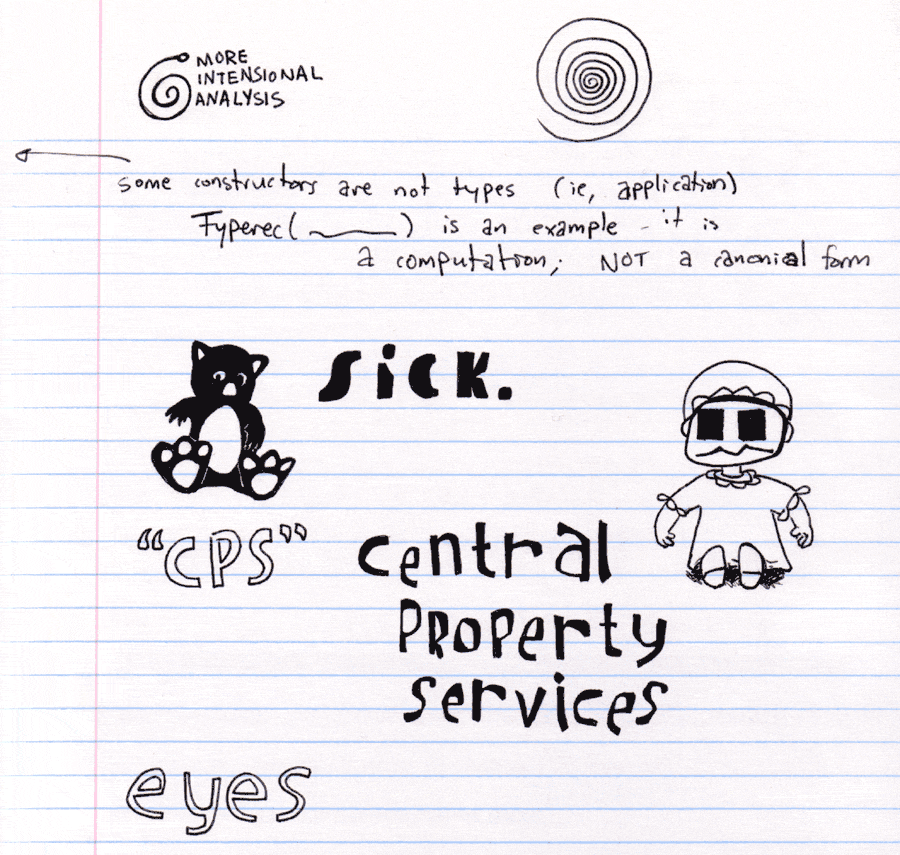 MORE
INTENSIONAL
ANALYSIS
some constructors are not types (ie, application)
Typerec( ) is an example - it is
a computation; NOT a canonical form
sick.
"CPS" central
property
services
eyes